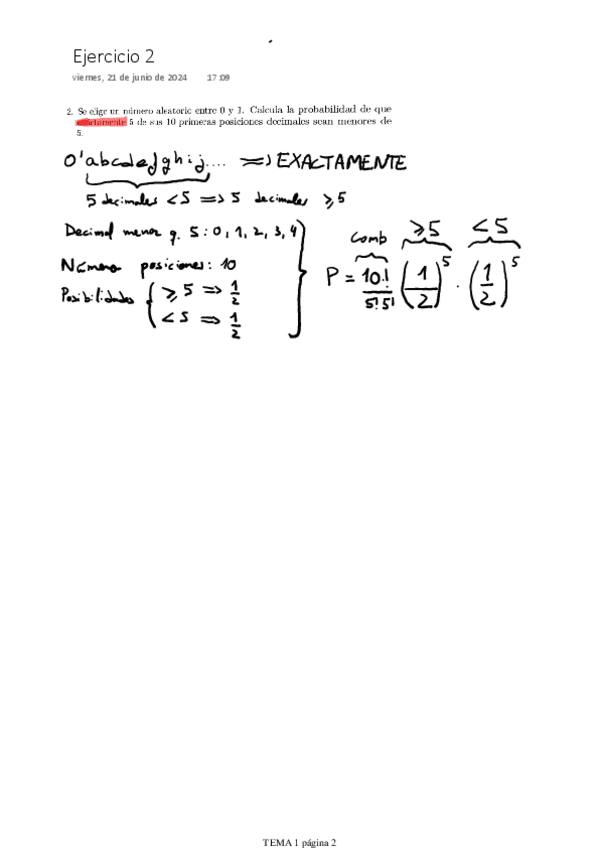 Ejercicio 2
viernes, 21 de junio de 2024 17:09
2. Se elige un número aleatorio entre 0 y 1. Calcula la probabilidad de que
exactamente 5 de sus 10 primeras posiciones decimales sean menores de
5.
0'abcdefghij.... => EXACTAMENTE
5 decimales < 5 => 5 decimales ≥ 5
Decimal menor q. 5 : 0, 1, 2, 3, 4
Número posiciones: 10
Posibilidades { ≥ 5 => 1/2
< 5 => 1/2
Comb ≥5 <5
P = 10!/5!5! (1/2)^5 · (1/2)^5
TEMA 1 página 2